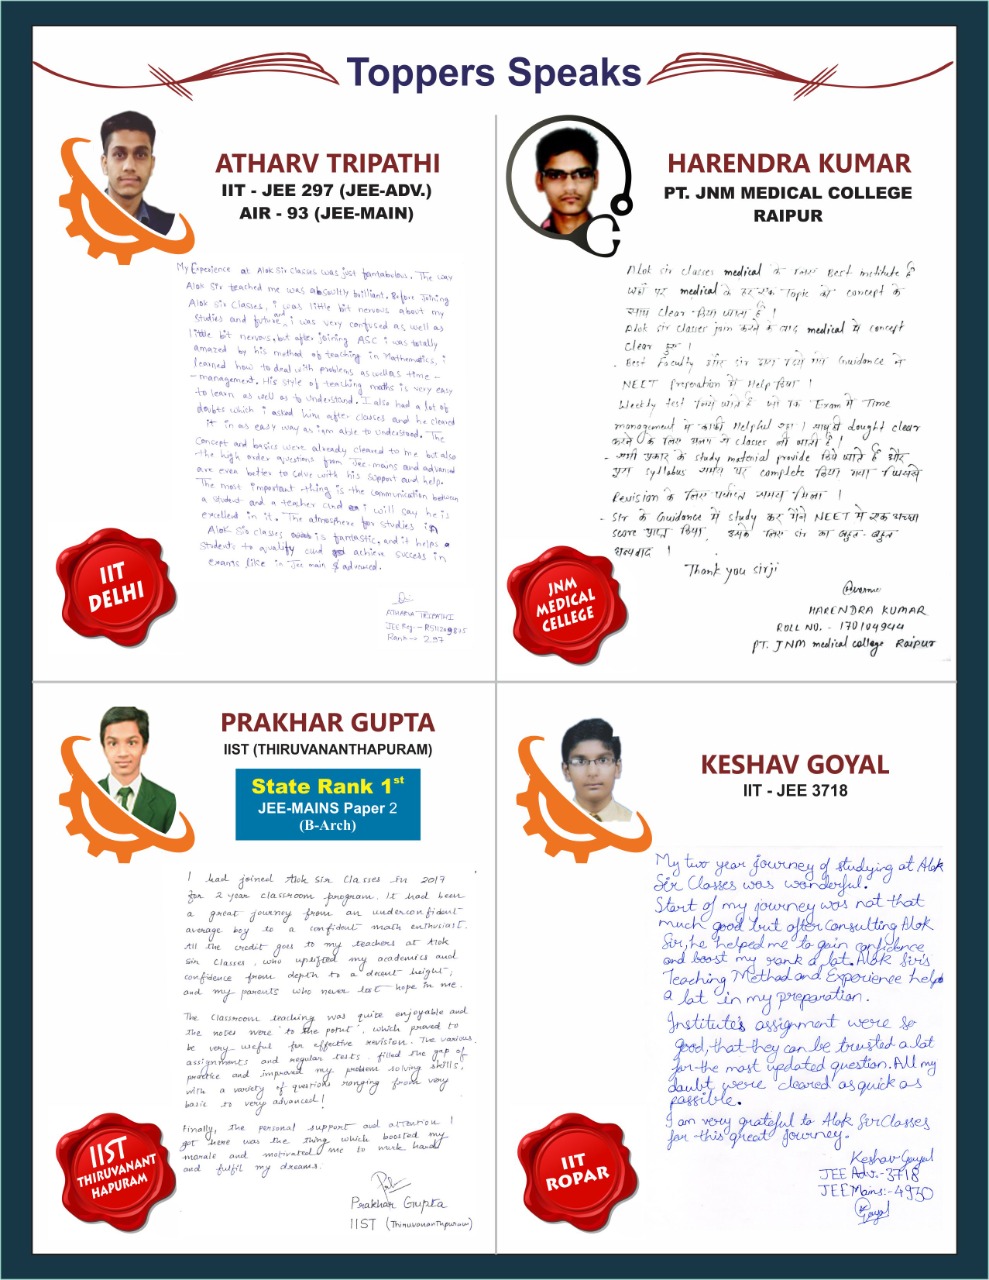 Toppers Speaks
ATHARV TRIPATHI
IIT - JEE 297 (JEE-ADV.)
AIR - 93 (JEE-MAIN)
My Experience at Alok Sir Classes was just fantabulous. The way
Alok Sir teached me was absoultly brilliant. Before Joining
Alok Sir Classes, i was little bit nervous about my
studies and future and i was very confused as well as
little bit nervous, but after joining ASC i was totally
amazed by his method of teaching in Mathematics, i
learned how to deal with problems as well as time-
-management. His style of teaching maths is very easy
to learn as well as to understand. I also had a lot of
doubts which i asked him after classes and he cleared
it in as easy way as i am able to understand. The
concept and basics were already cleared to me but also
the high order questions from Jee-mains and advanced
are even better to solve with his support and help.
The most important thing is the communication between
a student and a teacher and i will say he is
excelled in it. The atmosphere for studies in
Alok Sir classes is fantastic, and it helps
students to qualify and achieve success in
exams like in Jee main & advanced.
ATHARV TRIPATHI
JEE Reg -
Rank - 297
IIT
DELHI
HARENDRA KUMAR
PT. JNM MEDICAL COLLEGE
RAIPUR
Alok sir classes medical के लिए Best institute है
यहाँ पर medical के हर एक Topic को concept के
साथ clear किया जाता है।
Alok sir classes join करने के बाद medical में concept
clear हुए।
- Best Faculty और सर द्वारा दिये गए Guidance ने
NEET preparation में Help किया।
Weekly test लिये जाते हैं जो कि Exam में Time
management में काफी Helpful रहा। साथ ही dought clear
करने के लिए अलग से classes ली जाती है।
- सभी प्रकार के study material provide किये जाते हैं और
पूरा syllabus समय पर complete किया गया जिससे
Revision के लिए पर्याप्त समय मिला।
- Sir के Guidance में study कर मैंने NEET में एक अच्छा
score प्राप्त किया, इसके लिए सर का बहुत-बहुत
धन्यवाद।
Thank you sirji
HARENDRA KUMAR
ROLL NO. - 170104944
PT. JNM medical college Raipur
JNM
MEDICAL
CELLEGE
PRAKHAR GUPTA
IIST (THIRUVANANTHAPURAM)
State Rank 1st
JEE-MAINS Paper 2
(B-Arch)
I had joined Alok Sir Classes in 2017
for 2 year classroom program. It had been
a great journey from an underconfident
average boy to a confident math enthusiast.
All the credit goes to my teachers at Alok
Sir Classes, who uplifted my academics and
confidence from depth to a decent height;
and my parents who never lost hope in me.
The Classroom teaching was quite enjoyable and
the notes were 'to the point', which proved to
be very useful for effective revision. The various
assignments and regular tests, filled the gap of
practice and improved my problem solving skills,
with a variety of questions ranging from very
basic to very advanced!
Finally, the personal support and attention I
got here was the thing which boosted my
morale and motivated me to work hard
and fulfil my dreams.
Prakhar Gupta
IIST (Thiruvananthapuram)
IIST
THIRUVANANT
HAPURAM
KESHAV GOYAL
IIT - JEE 3718
My two year journey of studying at Alok
Sir Classes was wonderful.
Start of my journey was not that
much good but after consulting Alok
Sir, he helped me to gain confidence
and boost my rank a lot. Alok Sir's
Teaching Method and Experience helps
a lot in my preparation.
Institute's assignment were so
good, that they can be trusted a lot
for the most updated question. All my
doubt were cleared as quick as
possible.
I am very grateful to Alok Sir Classes
for this great journey.
Keshav Goyal
JEE Adv:-3718
JEE Mains:-4930
Goyal
IIT
ROPAR